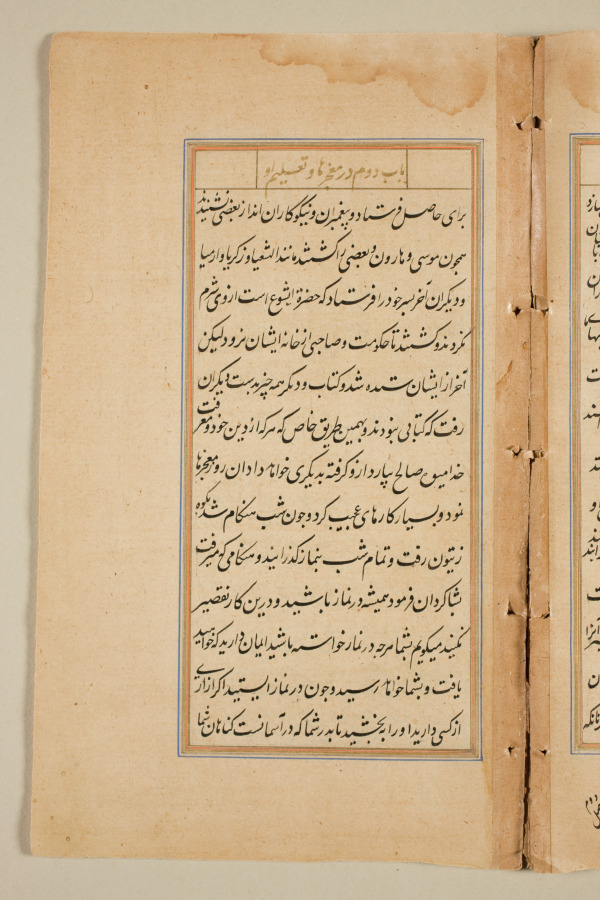 باب دوم در معجزها و تعلیم او
برای حاصل فرستاد و پیغمبران و نیکوکاران اند از بعضی نشنیدند
همچون موسی و هارون و بعضی را کشتند مانند اشعیا و زکریا و ارمیا
و دیگران آخر پسر خود را فرستاد که حضرة ایشوع است از وی شرم
نکردند و کشتند تا حکومت و صاحبی از خانه ایشان نرود لیکن
آخر از ایشان ستده شد و کتاب و دیگر همه چیز بدست دیگران
رفت که کتابی نبودند و بهمین طریق خاص که هر که از دین خود و معرفت
خدا میوه صالح نیارد ازو گرفته بدیگری خواهد داد ازان رو معجزها
نمود و بسیار کارهای عجیب کرد و چون شب هنگام شد بکوه
زیتون رفت و تمام شب بنماز گذرانید و هنگامی که میرفت
بشاگردان فرمود همیشه در نماز باشید و درین کار تقصیر
نکنید میگویم بشما هرچه در نماز خواسته باشید ایمان دارید که خواهید
یافت و بشما خواهد رسید و چون در نماز ایستید اگر آزاری
از کسی دارید او را ببخشید تا پدر شما که در آسمانست گناهان شما